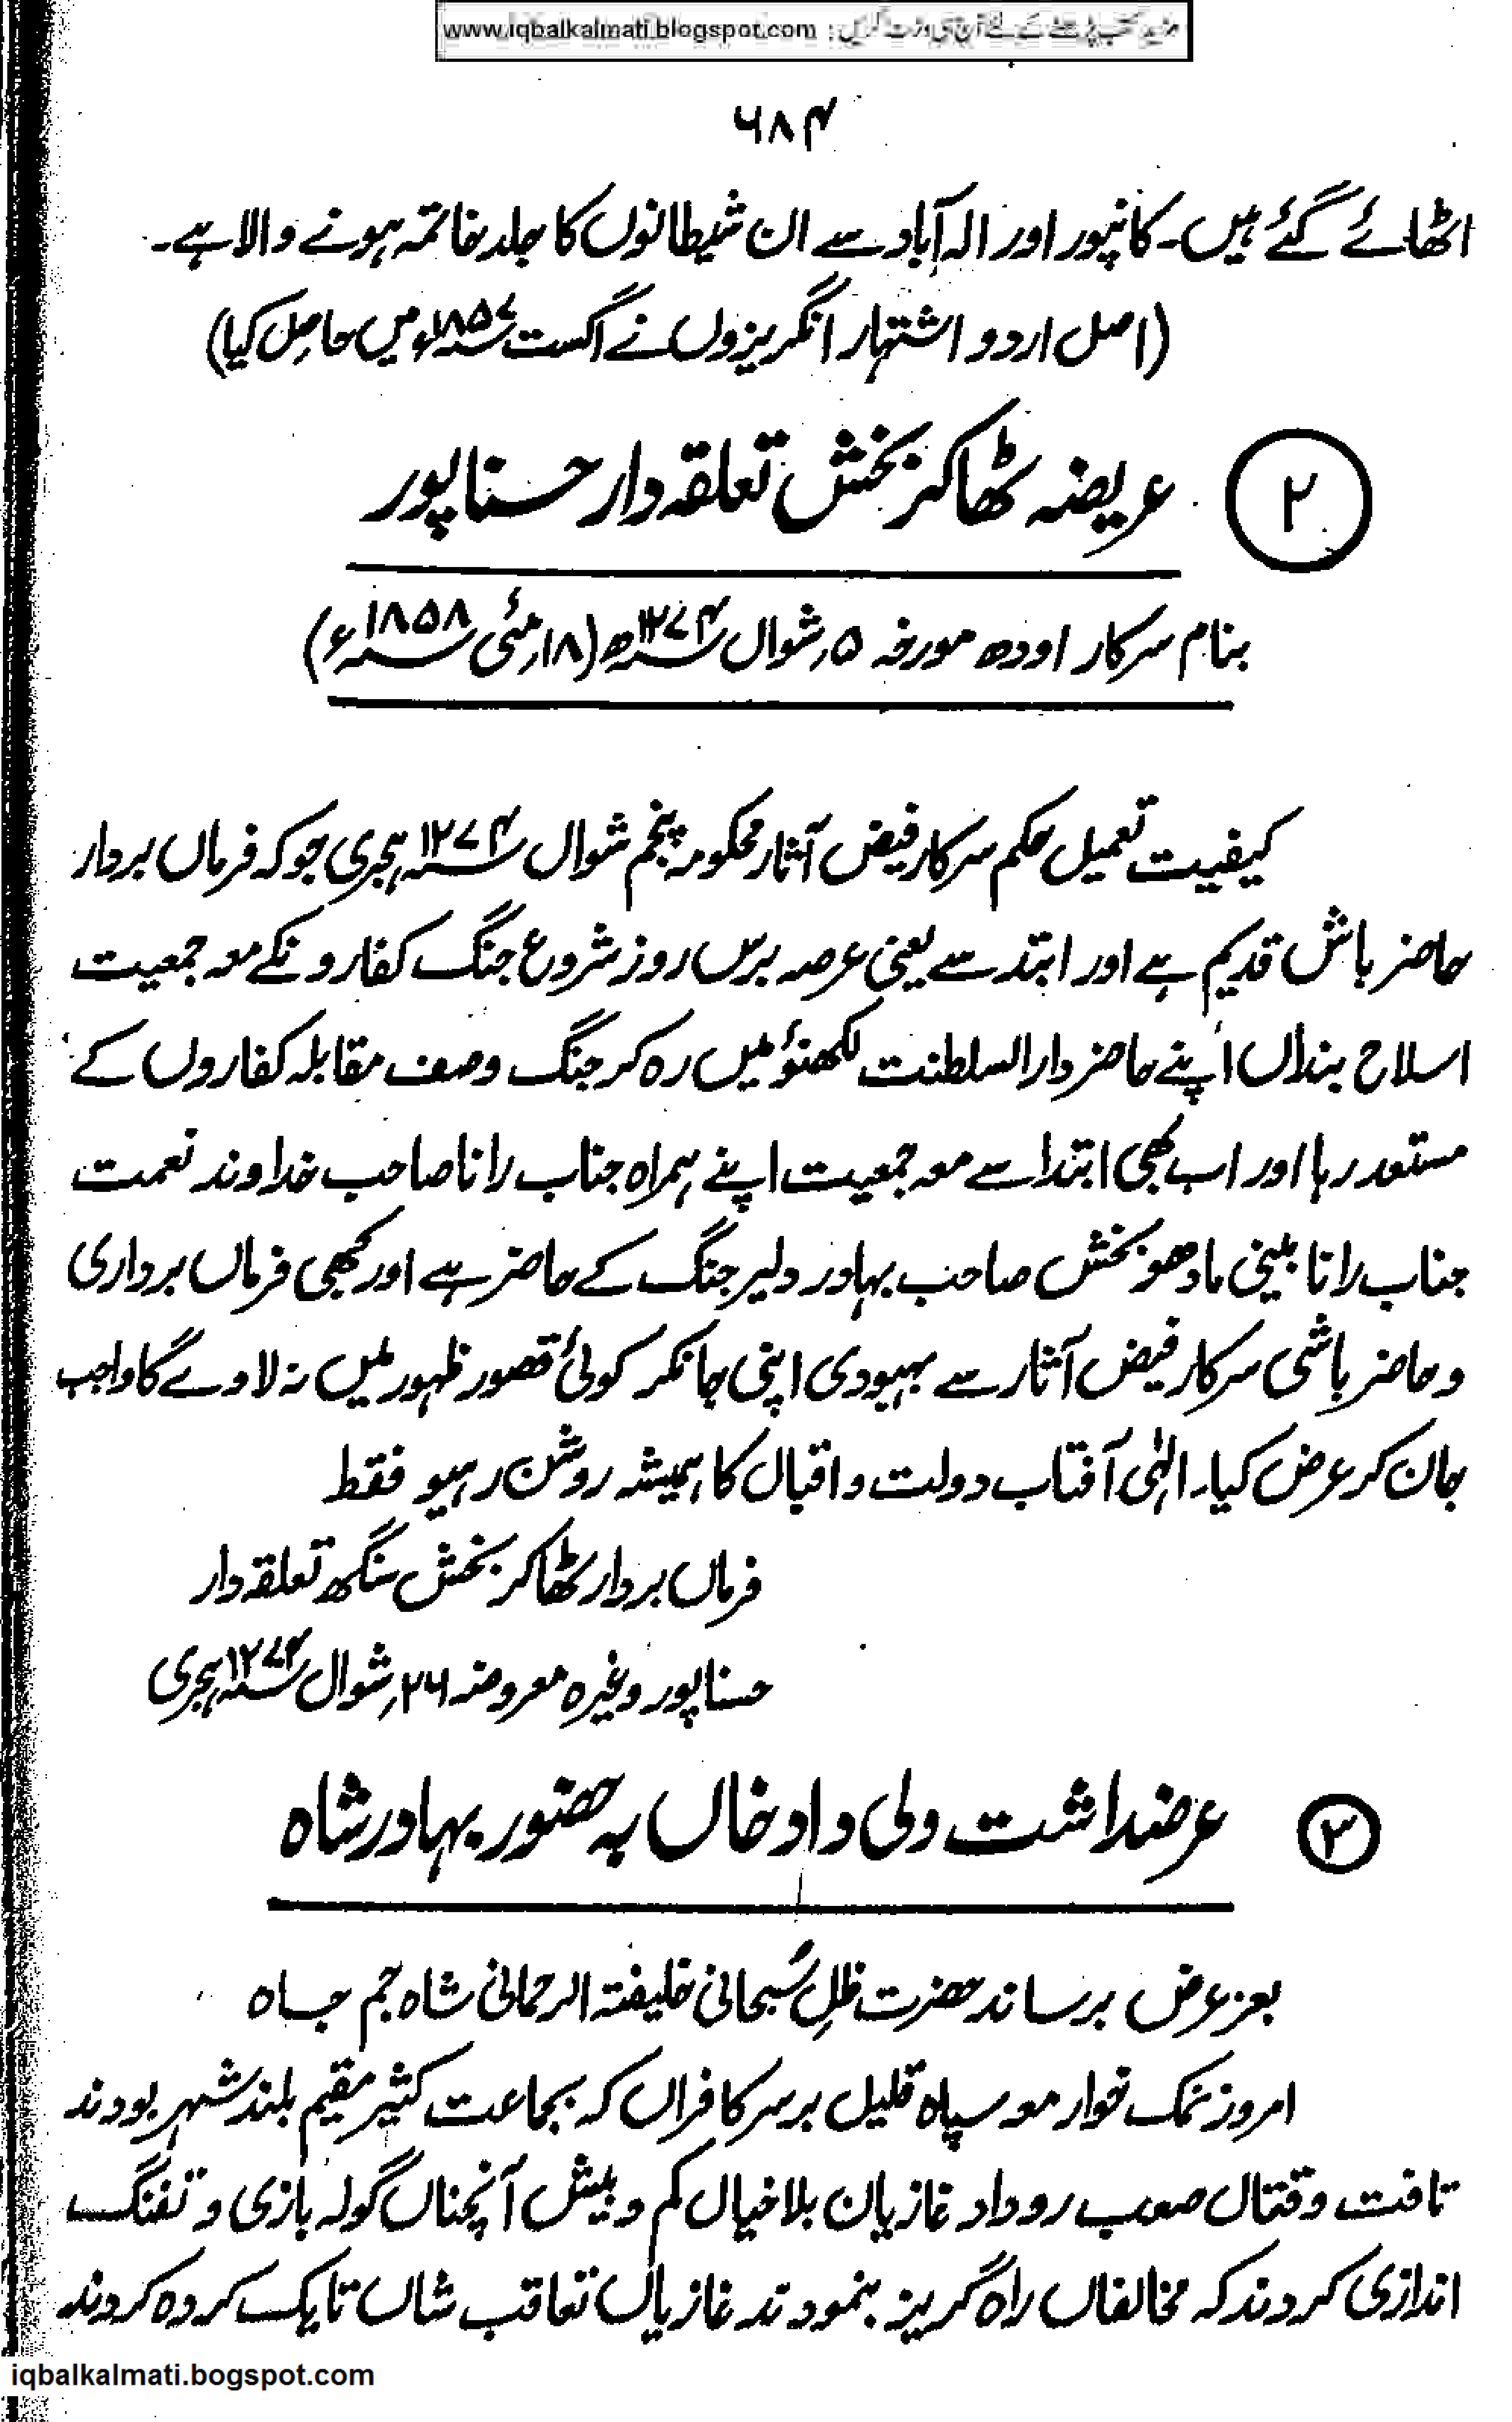 مزید کتب پڑھنے کے لئے آج ہی وزٹ کریں : www.iqbalkalmati.blogspot.com
۶۸۴
اٹھائے گئے ہیں۔ کانپور اور الہ آباد سے ان شیطانوں کا جلد خاتمہ ہونے والا ہے۔
(اصل اردو اشتہار انگریزوں نے اگست ۱۸۵۷ء میں حاصل کیا)
۲ عریضہ ٹھاکر بخش تعلقہ دار حسناپور
بنام سرکار اودھ مورخہ ۵ر شوال ۱۲۷۴ھ (۱۸ر مئی ۱۸۵۸ء)
کیفیت تعمیل حکم سرکار فیض آثار محکومہ پنجم شوال ۱۲۷۴ ہجری جو کہ فرماں بردار
حاضر باش قدیم ہے اور ابتد سے یعنی عرصہ برس روز شروع جنگ کفارونکے معہ جمعیت
اسلاح بنداں اپنے حاضر دارالسلطنت لکھنؤ میں رہ کر جنگ وصف مقابلہ کفاروں کے
مستعد رہا اور اب بھی ابتدا سے معہ جمعیت اپنے ہمراہ جناب رانا صاحب خداوند نعمت
جناب رانا بینی مادھو بخش صاحب بہادر دلیر جنگ کے حاضر ہے اور کبھی فرماں برداری
و حاضر باشی سرکار فیض آثار سے بہبودی اپنی جانکر کوئی قصور ظہور میں نہ لاوے گا واجب
جان کر عرض کیا۔ الٰہی آفتاب دولت و اقبال کا ہمیشہ روشن رہیو فقط
فرماں بردار ٹھاکر بخش سنگھ تعلقہ دار
حسناپور وغیرہ معروضہ ۲۶ر شوال ۱۲۷۴ ہجری
۳ عرضداشت ولی داد خاں بہ حضور بہادر شاہ
بعز عرض برساند حضرت ظلِ سُبحانی خلیفتہ الرحمانی شاہ جم جاہ
امروز نمک خوار معہ سپاہ قلیل برسر کافراں کہ بجماعت کثیر مقیم بلند شہر بودند
تافت و قتال صعب روداد غازیان بلاخیال کم و بیش آنچناں گولہ بازی و تفنگ
اندازی کردند کہ مخالفاں راہ گریز بنمودند غازیاں تعاقب شاں تا یک کردہ کردند
iqbalkalmati.bogspot.com